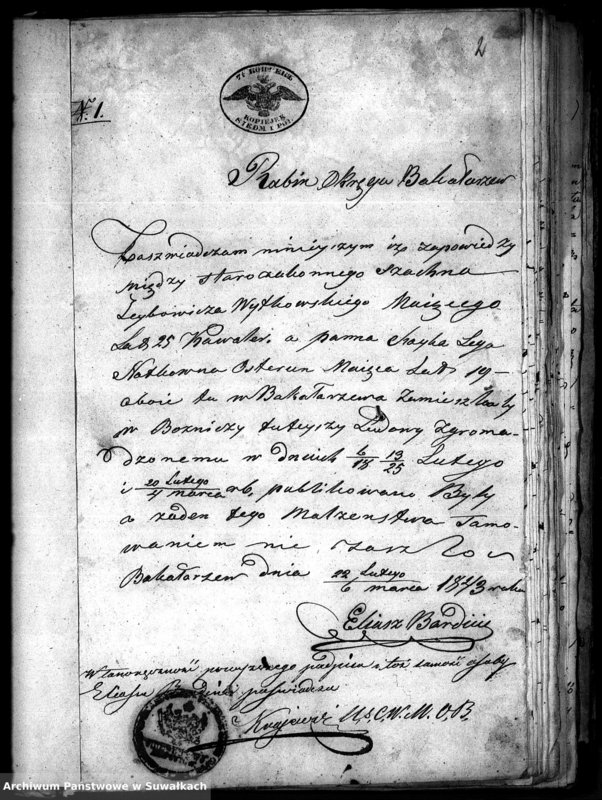 2
7½ КОПѢЕКЪ
KOPIEJEK
SIEDM I PÓŁ
N. 1.
Rabin Okręga Bakałarzew
Zaszwiadczam niniejszym iż zapowiedzy
między starozakonnego Szachna
Leybowicza Wytkowskiego Maięcego
Lat 25 Kawaler. a panna Chayka Lega
Notkowna Osterun Maięca Lat 19 –
oboie tu w Bakałarzewa Zamieszkały
w Bozniczy tuteyszy Ludowy Zgroma-
dzonemu w dniach 6/18 13/25 Lutego
i 20 Lutego/4 marca rb, publikowane Były
a żaden tego Malzenstwa Tamo-
waniem nie zaszło
Bakałarzew dnia 22 Lutego/6 marca 1873 roku
Eliasz Bardin
Własnoręczność powyższego podpisu i toż samość osoby
Eliasza poświadcza
M. O. B.
Archiwum Państwowe w Suwałkach